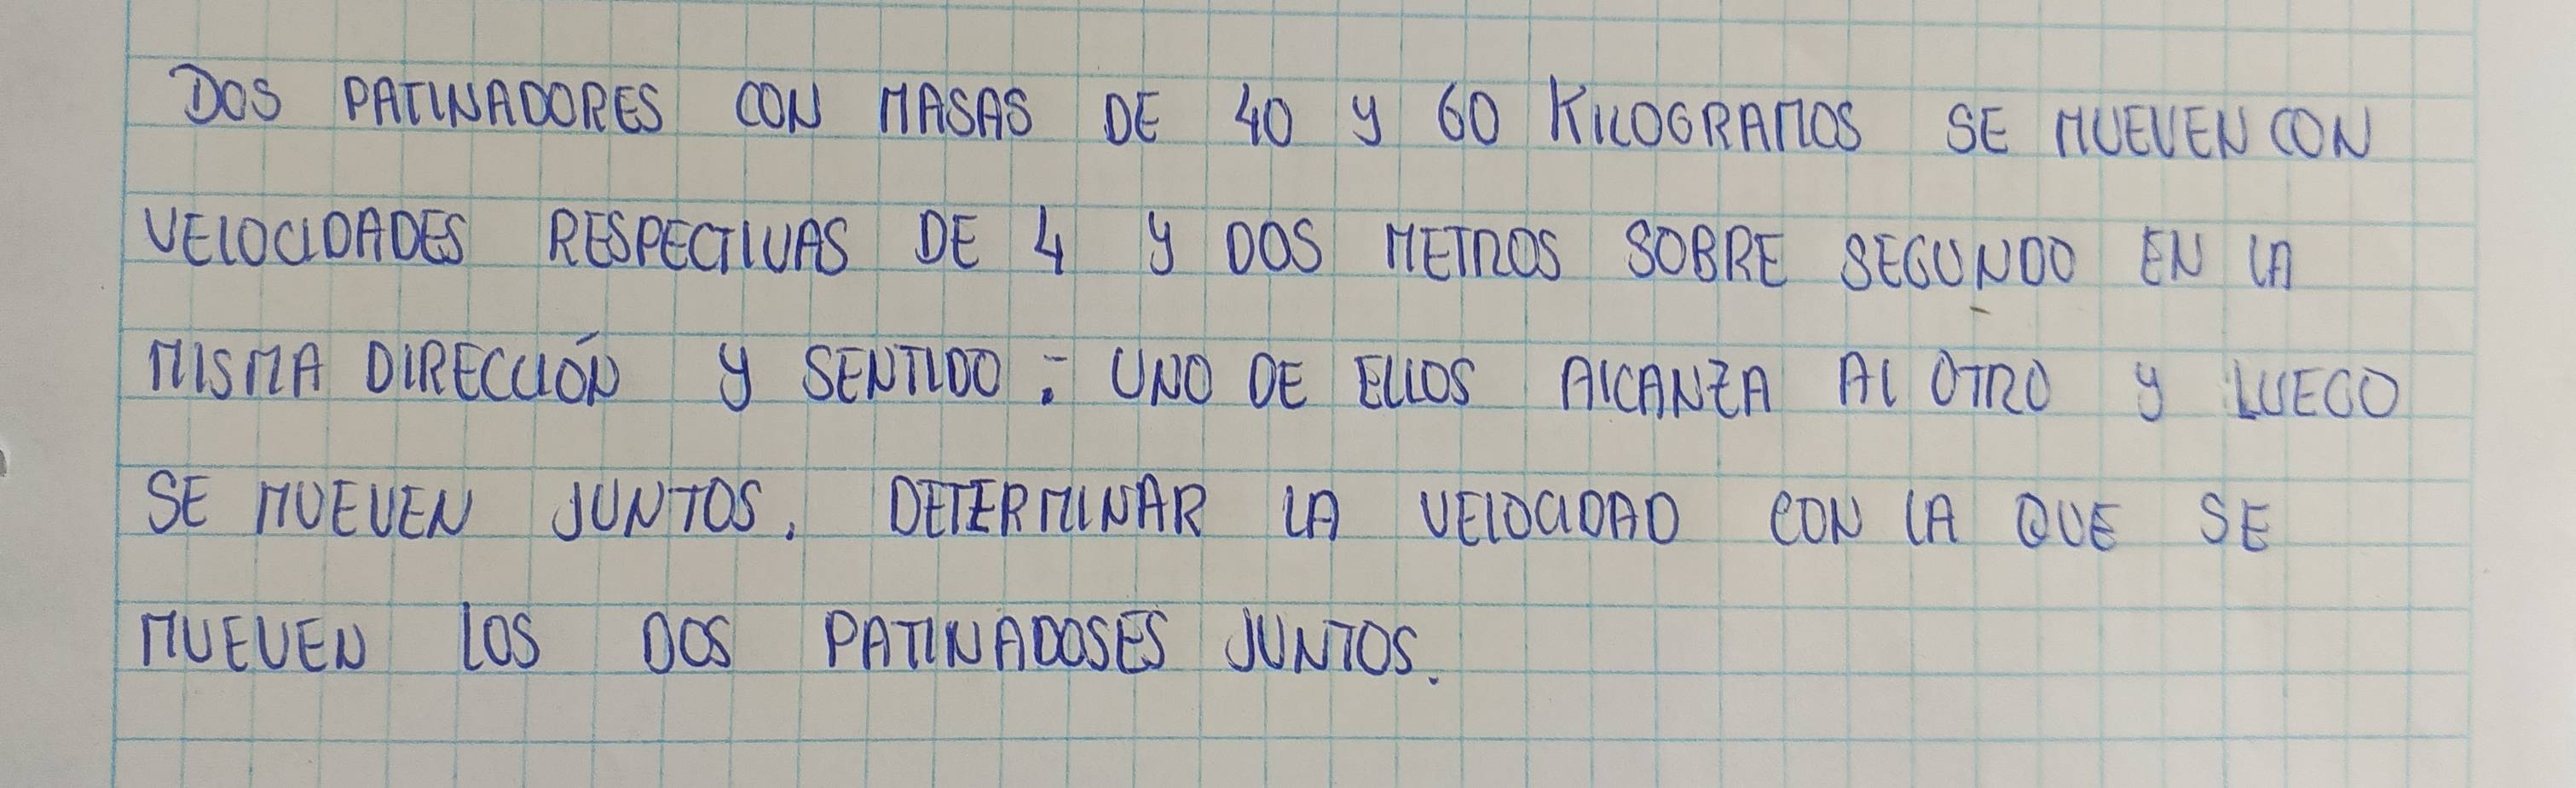 DOS PATINADORES CON MASAS DE 40 Y 60 KILOGRAMOS SE MUEVEN CON
VELOCIDADES RESPECTIVAS DE 4 Y DOS METROS SOBRE SEGUNDO EN LA
MISMA DIRECCIÓN Y SENTIDO: UNO DE ELLOS ALCANZA AL OTRO Y LUEGO
SE MUEVEN JUNTOS. DETERMINAR LA VELOCIDAD CON LA QUE SE
MUEVEN LOS DOS PATINADOSES JUNTOS.